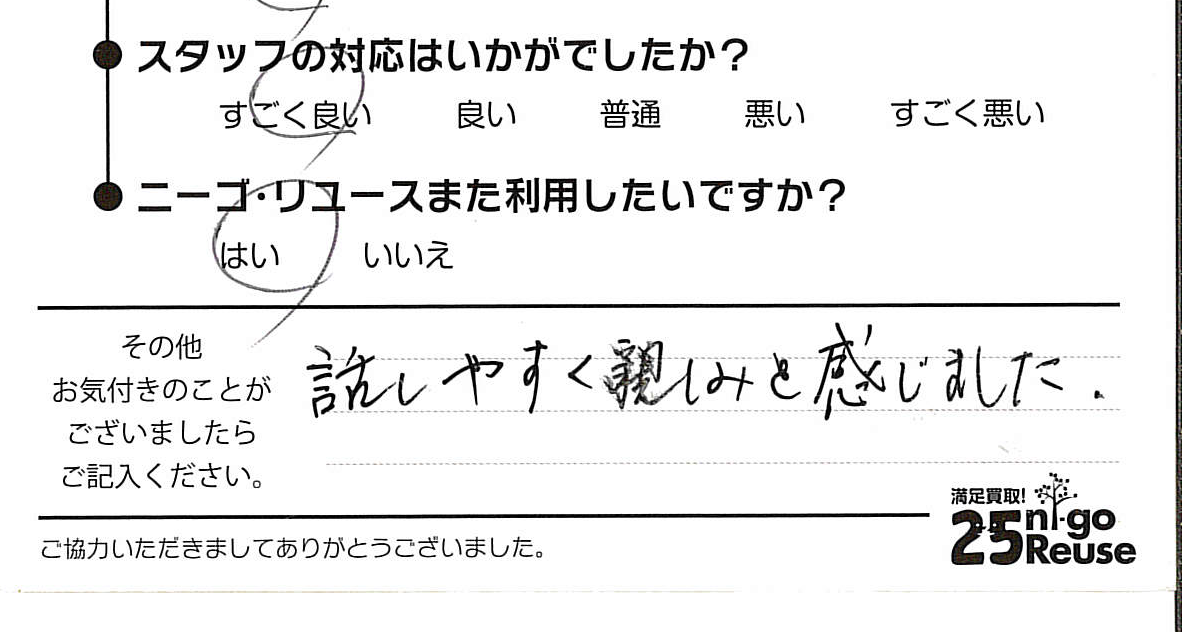 スタッフの対応はいかがでしたか？
すごく良い 良い 普通 悪い すごく悪い
ニーゴ・リユースまた利用したいですか？
はい いいえ
その他
お気付きのことが
ございましたら
ご記入ください。
話しやすく親しみを感じました.
満足買取!
25 ni-go
Reuse
ご協力いただきましてありがとうございました。